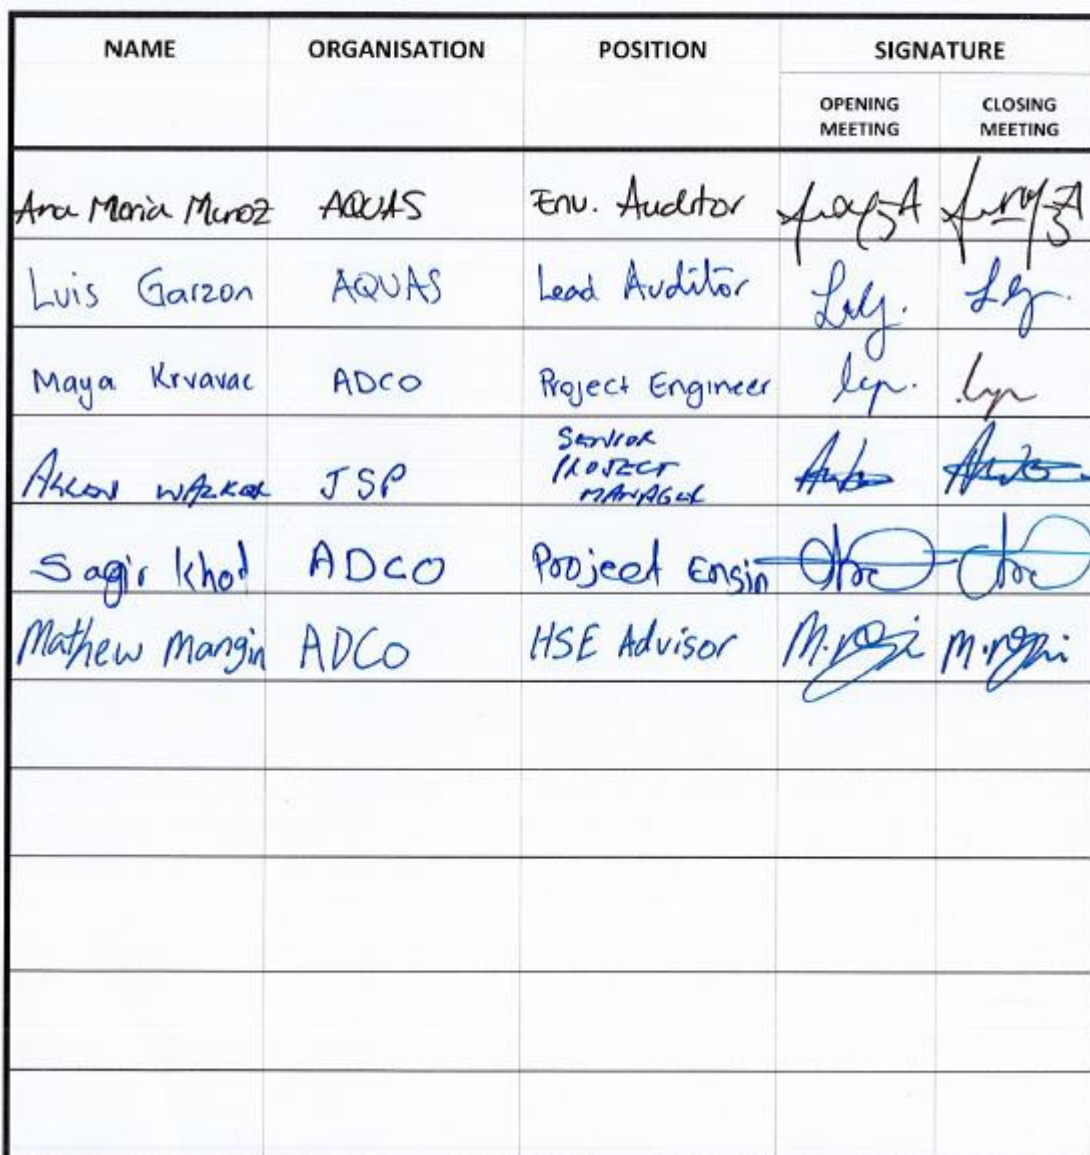 NAME ORGANISATION POSITION SIGNATURE
OPENING MEETING CLOSING MEETING
Ana Maria Munoz AQUAS Env. Auditor
Luis Garzon AQUAS Lead Auditor
Maya Krvavac ADCO Project Engineer
JSP SENIOR PROJECT MANAGER
Sagir ADCO Project Engin
Mathew Mangin ADCO HSE Advisor